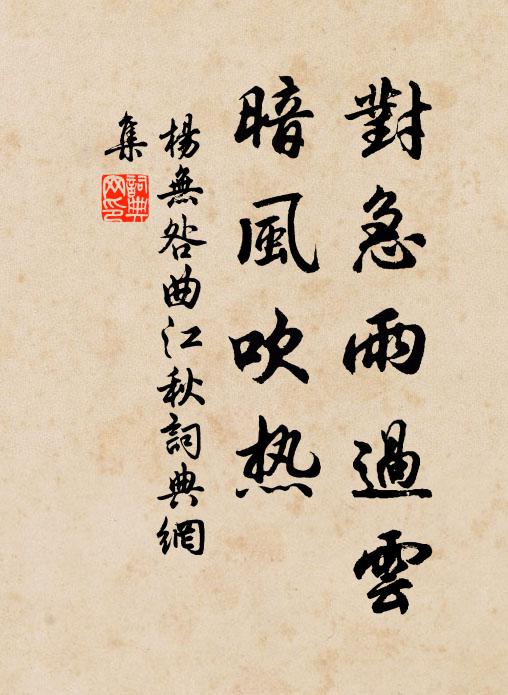 對急雨過雲
暗風吹热
楊無咎曲江秋詞典網
集
詞典网印